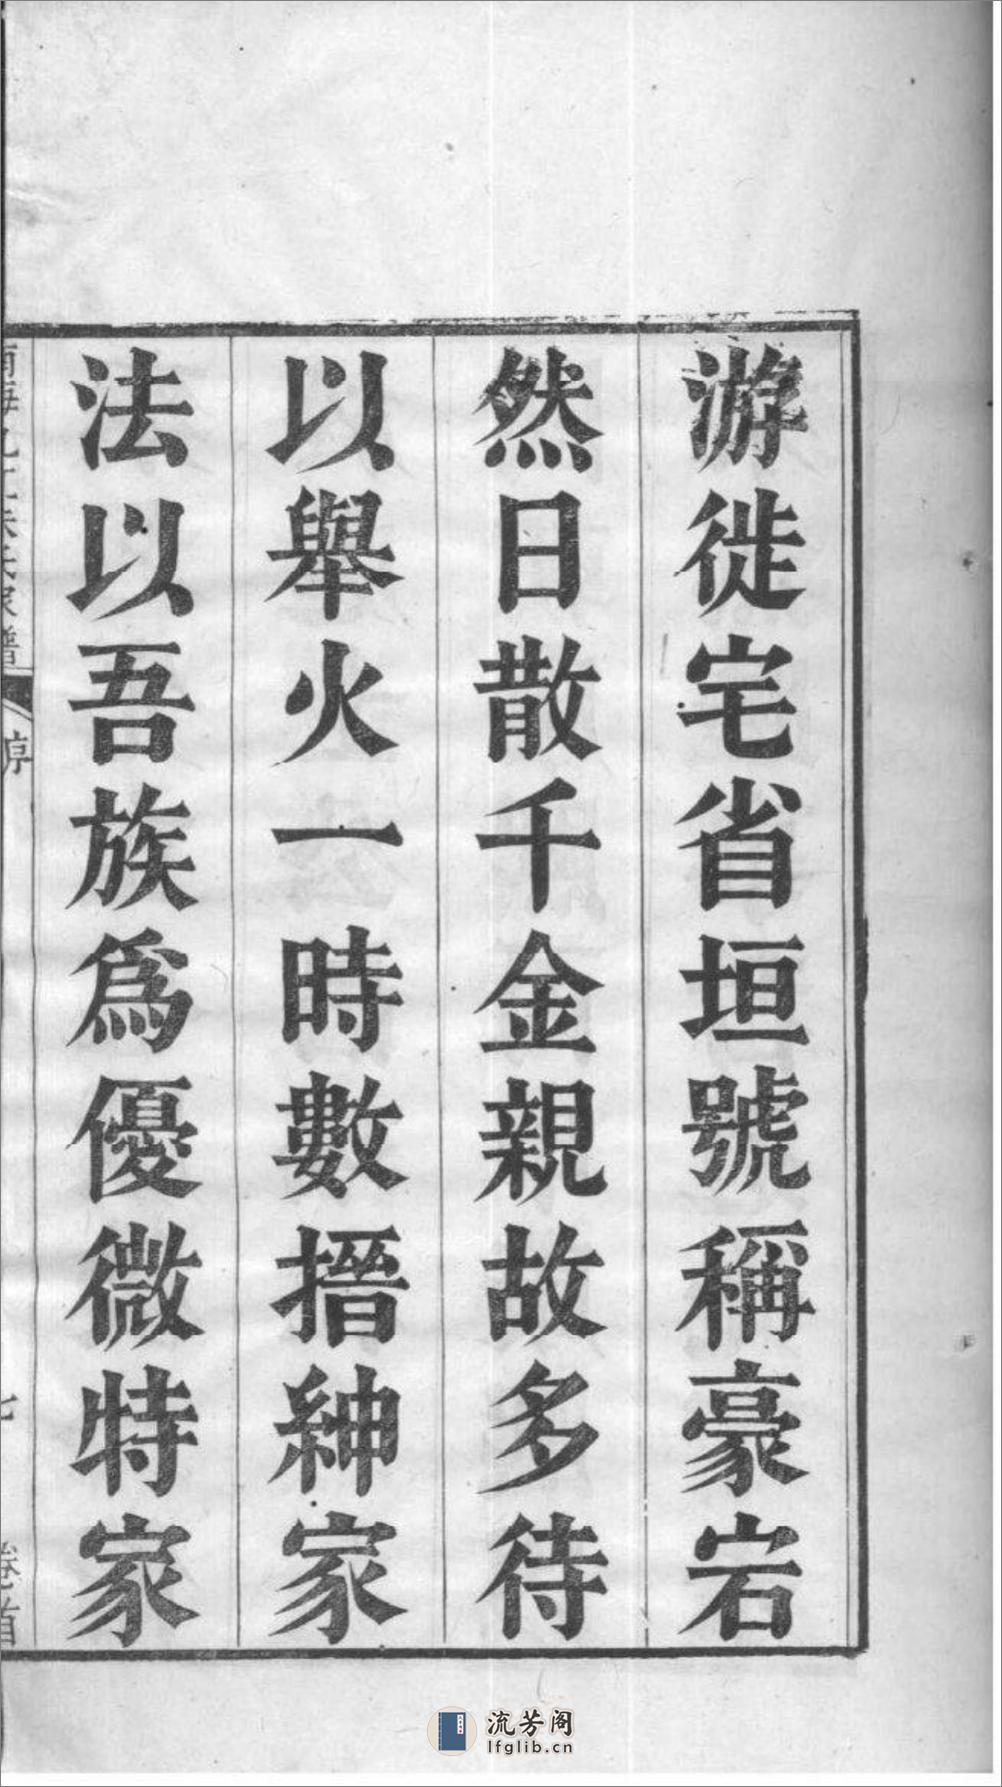 游徙宅省垣號稱豪宕
然日散千金親故多待
以舉火一時數搢紳家
法以吾族為優微特家
序
卷首
流芳阁
lfglib.cn